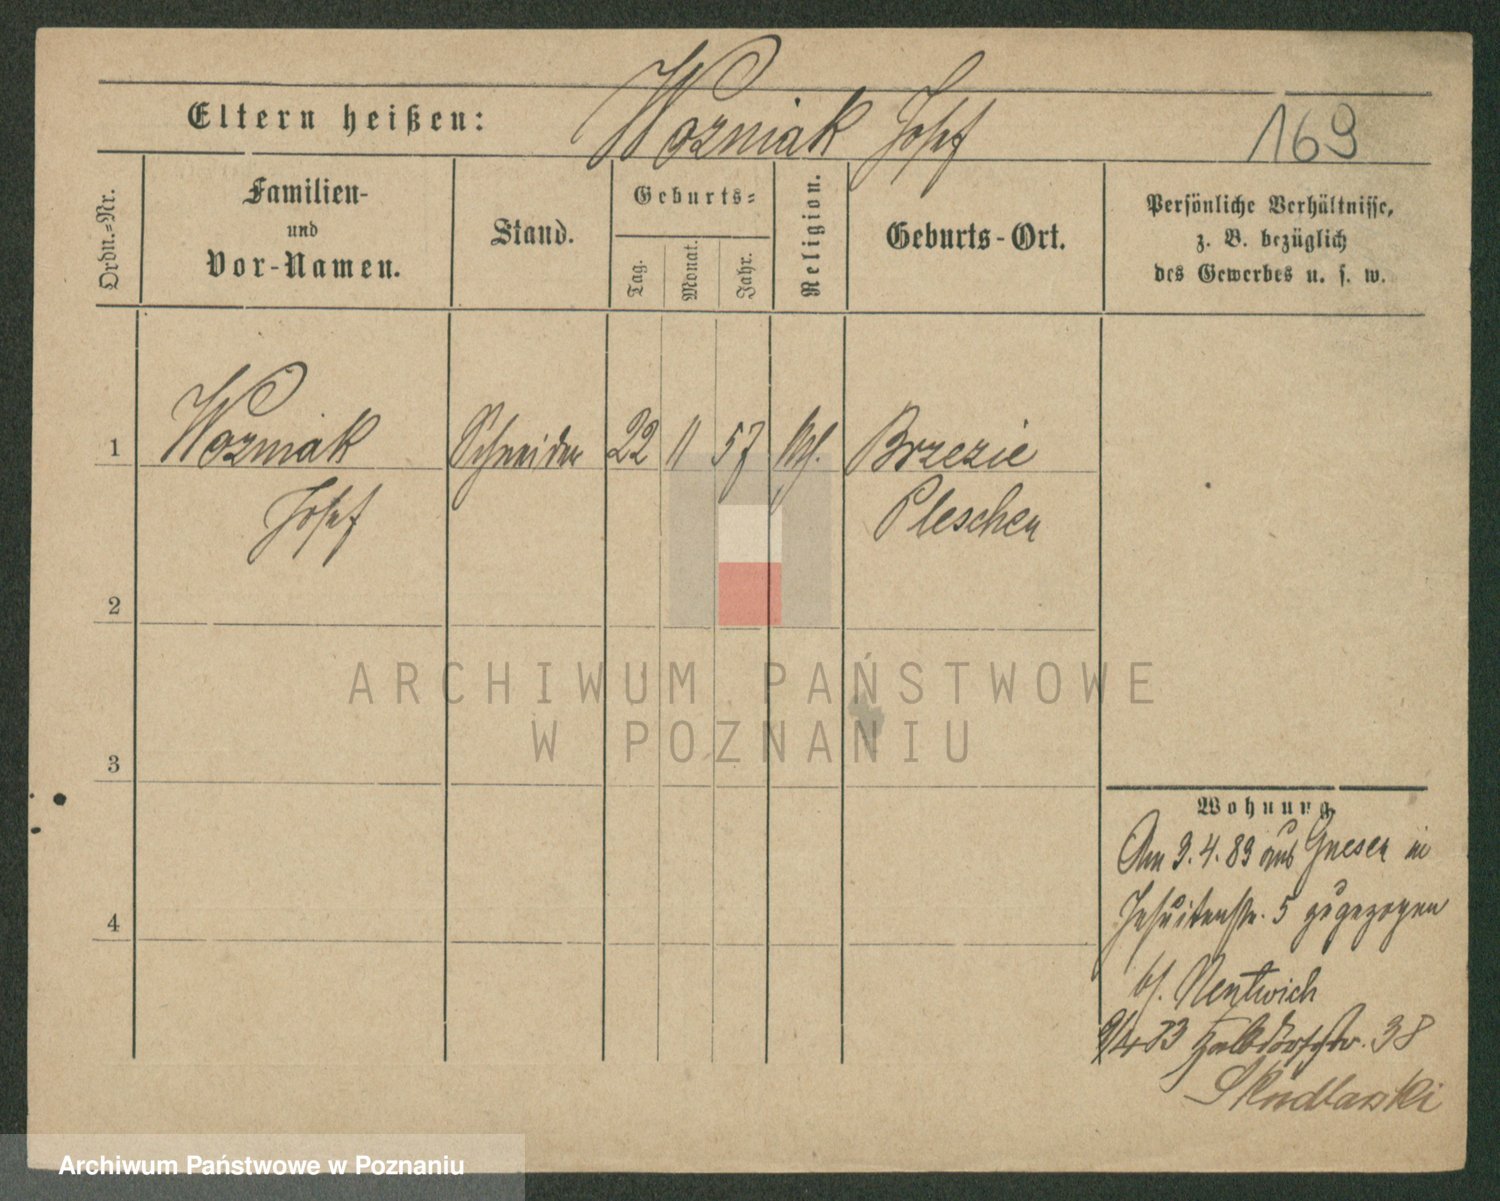 Eltern heißen: Wozniak Josef 169
Ordn.-Nr.
Familien-
und
Vor-Namen.
Stand.
Geburts-
Tag.
Monat.
Jahr.
Religion.
Geburts-Ort.
Persönliche Verhältnisse,
z. B. bezüglich
des Gewerbes u. s. w.
1 Wozniak Schneider 22 11 57 kth. Brzezie
Josef Pleschen
2
3
4
ARCHIWUM PAŃSTWOWE
W POZNANIU
Wohnung.
Am 3.4.83 aus Gnesen in
Jesuitenstr. 5 zugezogen
bf. Nentwich
9/4 83 Halbdorfstr. 38
Skudlarski
Archiwum Państwowe w Poznaniu